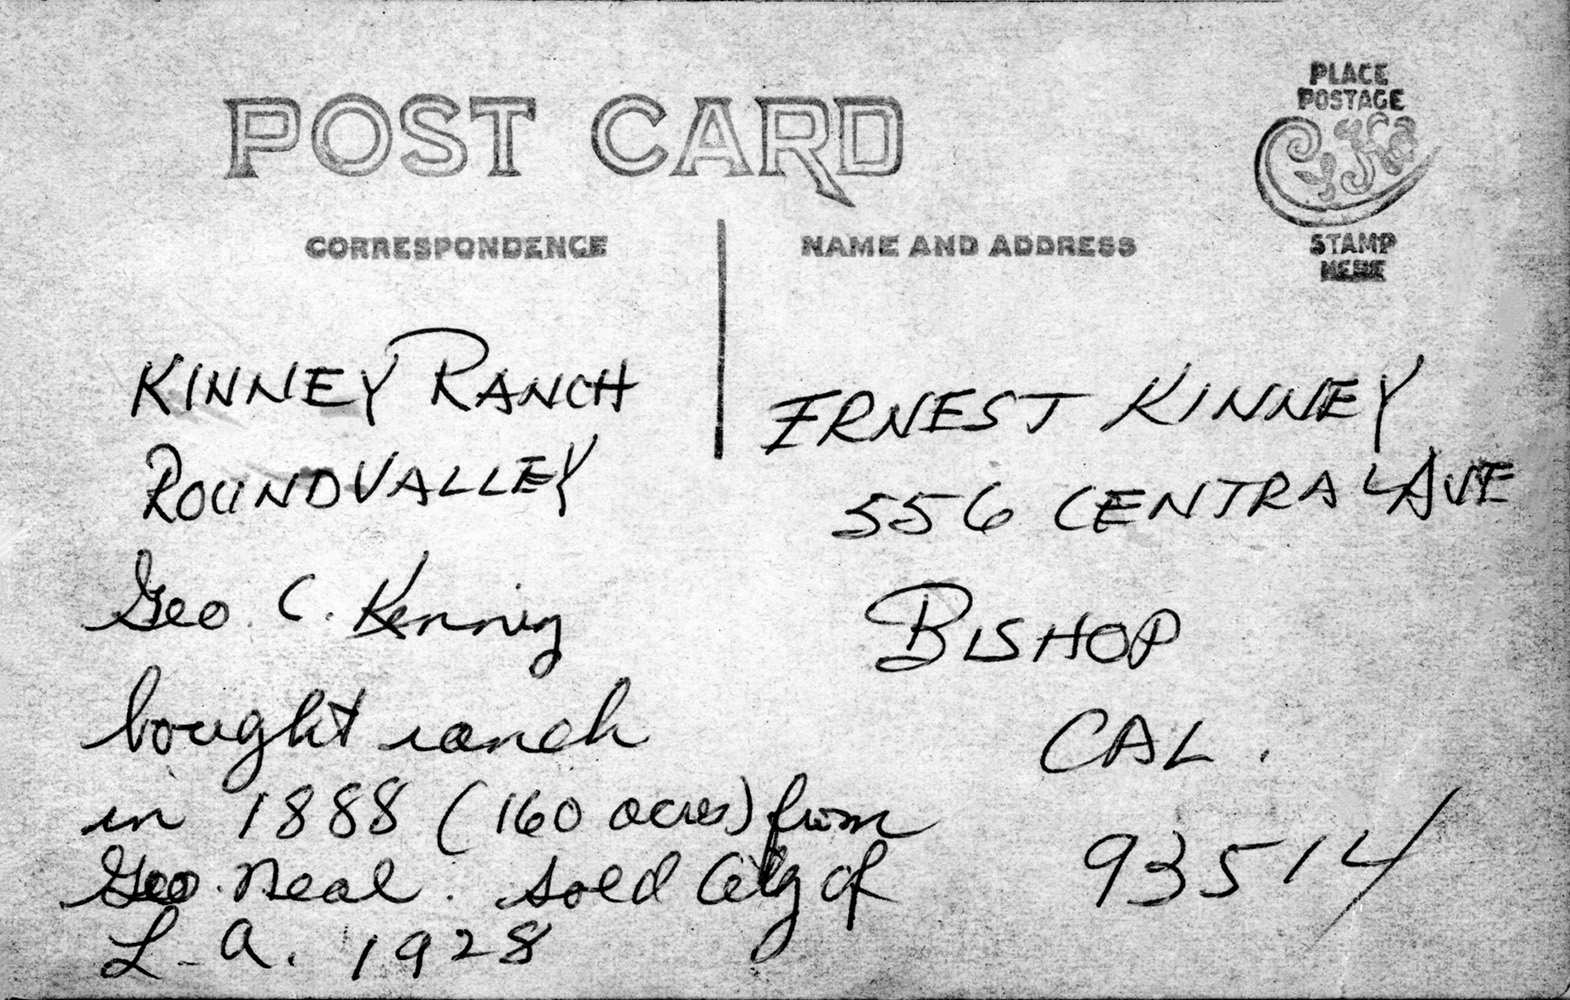 POST CARD
PLACE
POSTAGE
STAMP
HERE
CORRESPONDENCE
NAME AND ADDRESS
KINNEY RANCH
ROUND VALLEY
Geo. C. Kinney
bought ranch
in 1888 (160 acres) from
Geo. Neal. Sold City of
L.A. 1928
ERNEST KINNEY
556 CENTRAL AVE
BISHOP
CAL.
93514